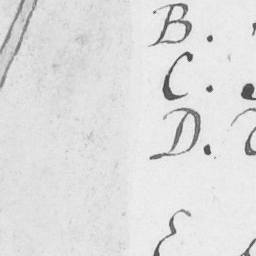 B.
C.
D.
E